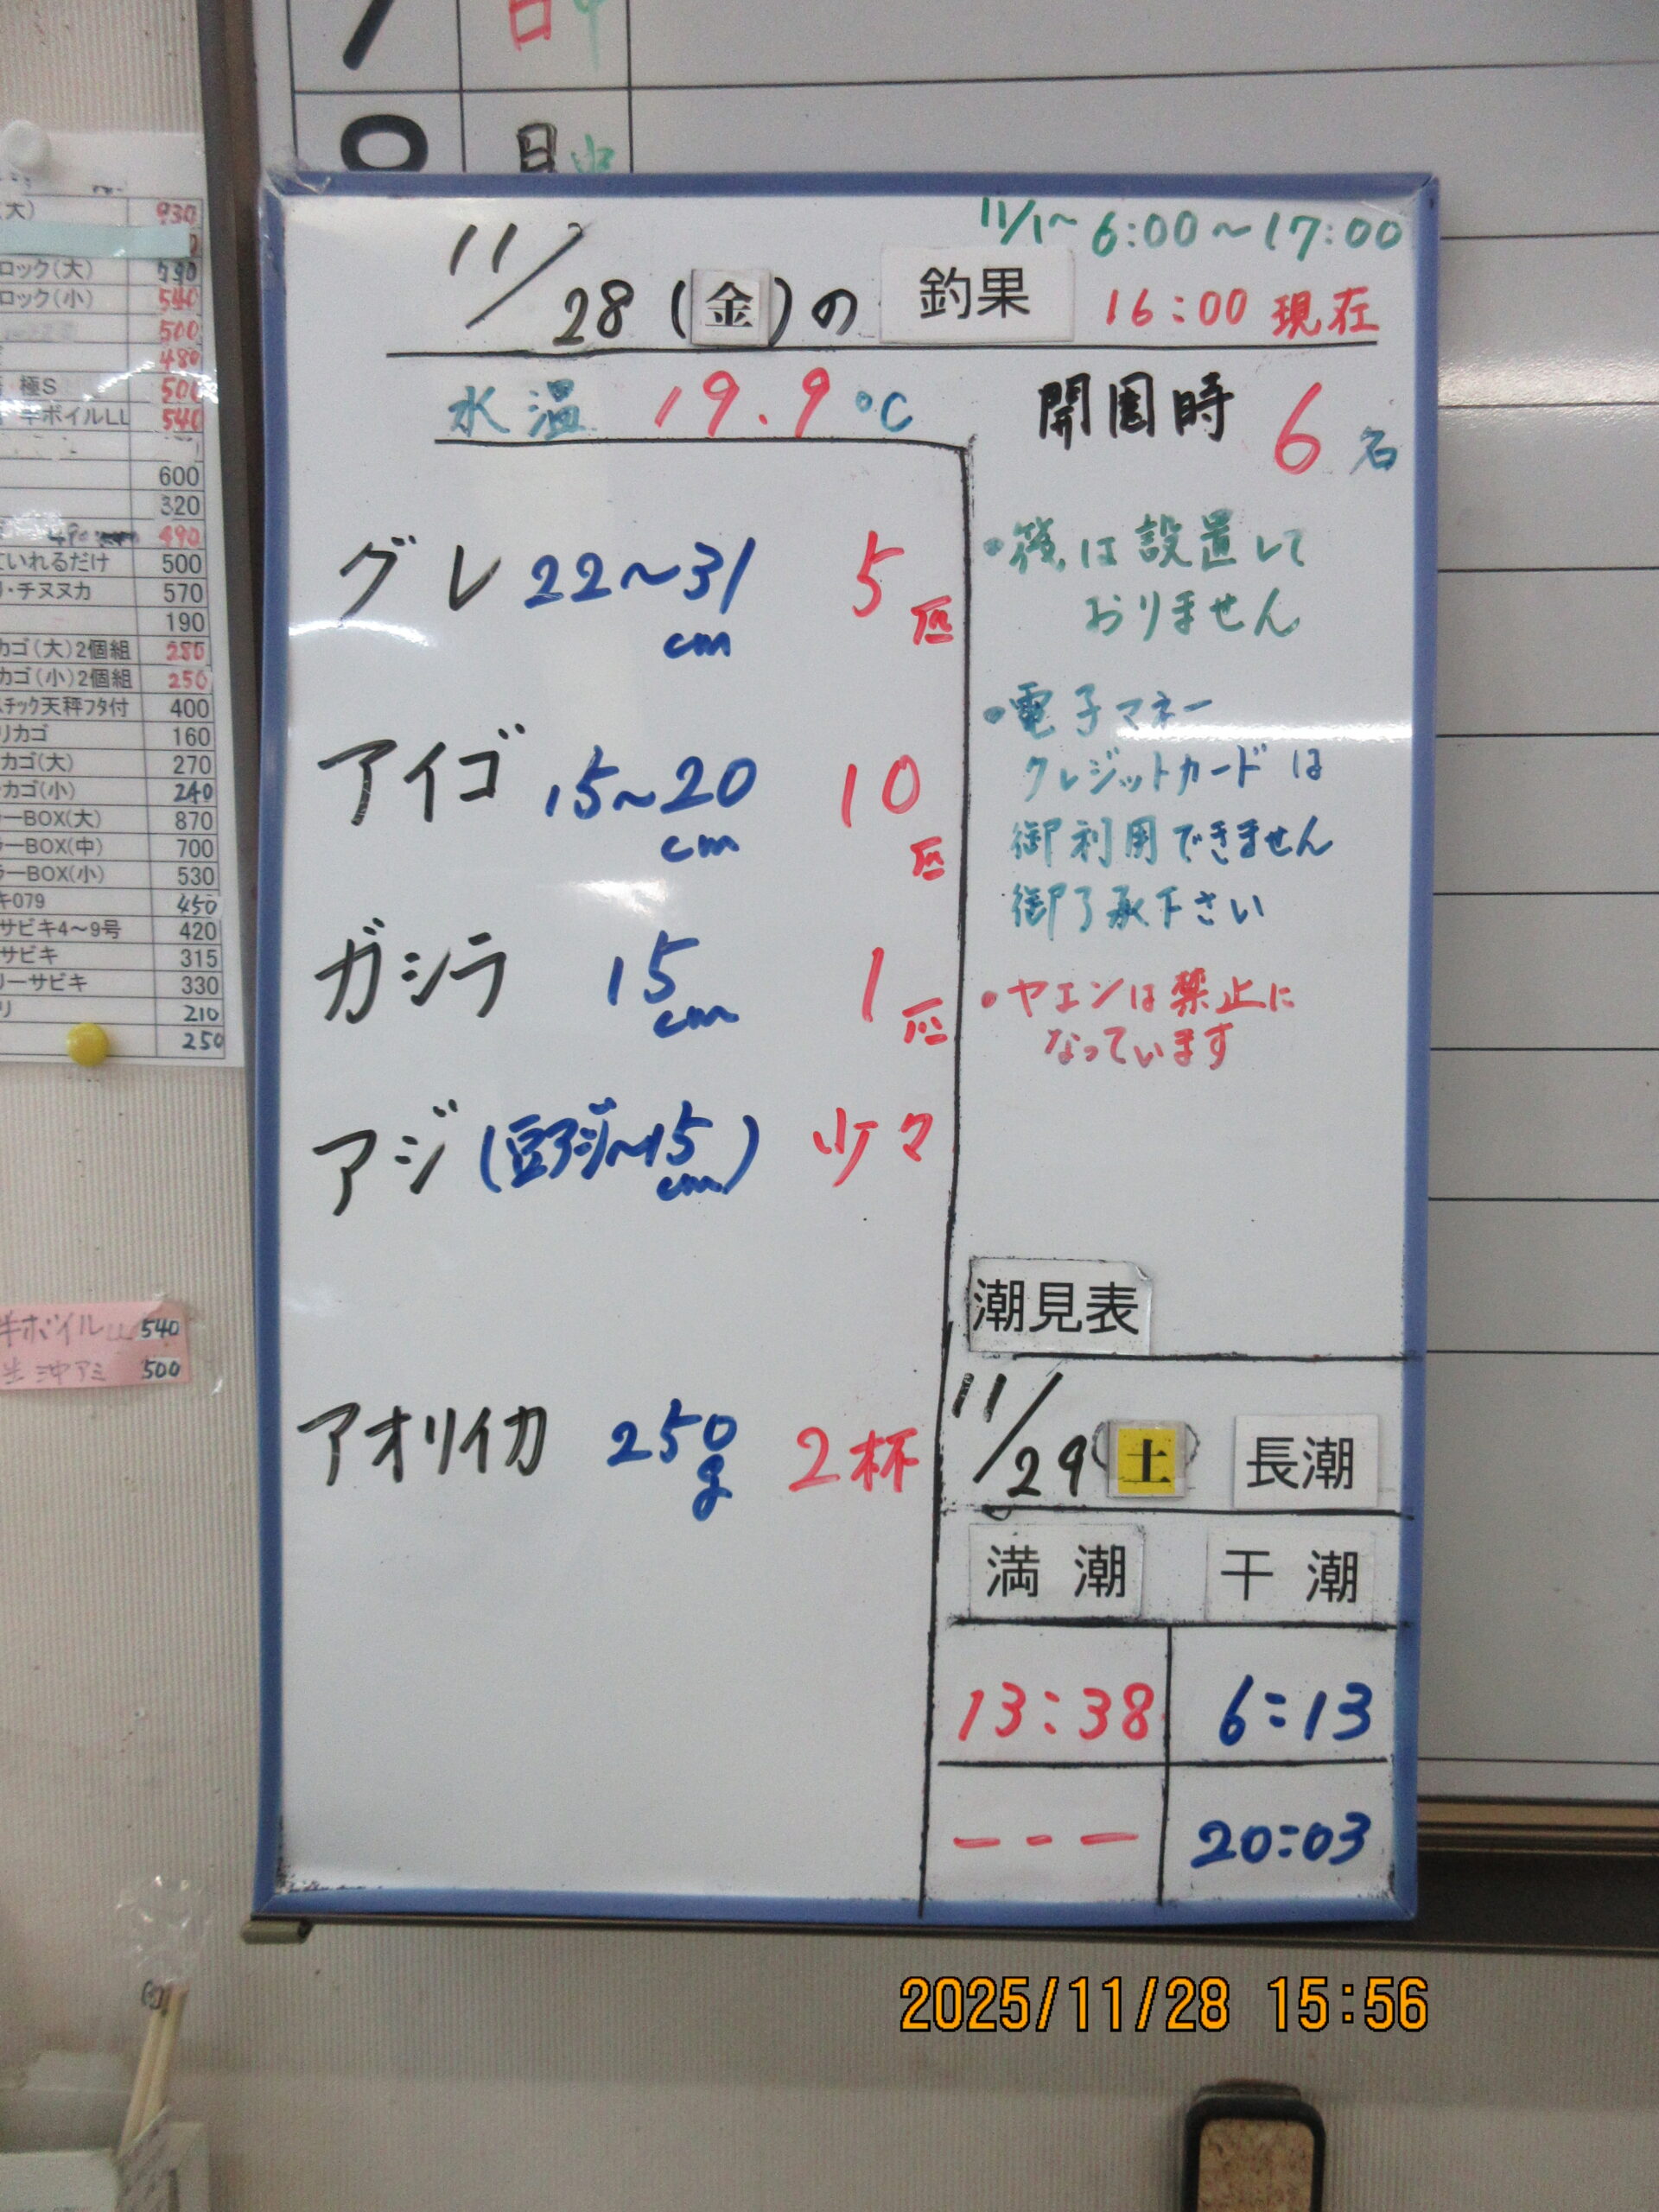 日中
日中
11/1〜 6:00〜17:00
11/28(金)の 釣果 16:00 現在
水温 19.9℃
開園時 6名
グレ 22〜31cm 5匹
アイゴ 15〜20cm 10匹
ガシラ 15cm 1匹
アジ(豆アジ〜15cm) 少々
アオリイカ 250g 2杯
・筏は設置して
おりません
・電子マネー
クレジットカードは
御利用できません
御了承下さい
・ヤエンは禁止に
なっています
潮見表
11/29(土) 長潮
満潮 干潮
13:38 6:13
--- 20:03
大) 930
ロック(大) 790
ロック(小) 540
500
480
極S 500
半ボイルLL 540
600
320
490
ていれるだけ 500
・チヌヌカ 570
190
カゴ(大)2個組 280
カゴ(小)2個組 250
スチック天秤フタ付 400
リカゴ 160
カゴ(大) 270
カゴ(小) 240
ーBOX(大) 870
ーBOX(中) 700
ーBOX(小) 530
キ079 450
サビキ4〜9号 420
サビキ 315
リーサビキ 330
リ 210
250
半ボイルLL 540
生沖アミ 500
2025/11/28 15:56